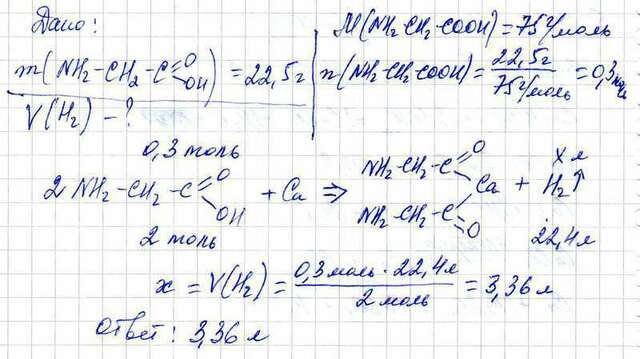 Дано:
m(NH₂-CH₂-C(=O)OH) = 22,5г
V(H₂) - ?
M(NH₂CH₂-COOH) = 75г/моль
n(NH₂CH₂-COOH) = 22,5г / 75г/моль = 0,3 моль
0,3 моль x л
2 NH₂-CH₂-C(=O)OH + Ca ⇒ NH₂-CH₂-C(=O) Ca NH₂-CH₂-C(=O) + H₂↑
2 моль 22,4л
x = V(H₂) = 0,3 моль · 22,4л / 2 моль = 3,36 л
Ответ: 3,36 л